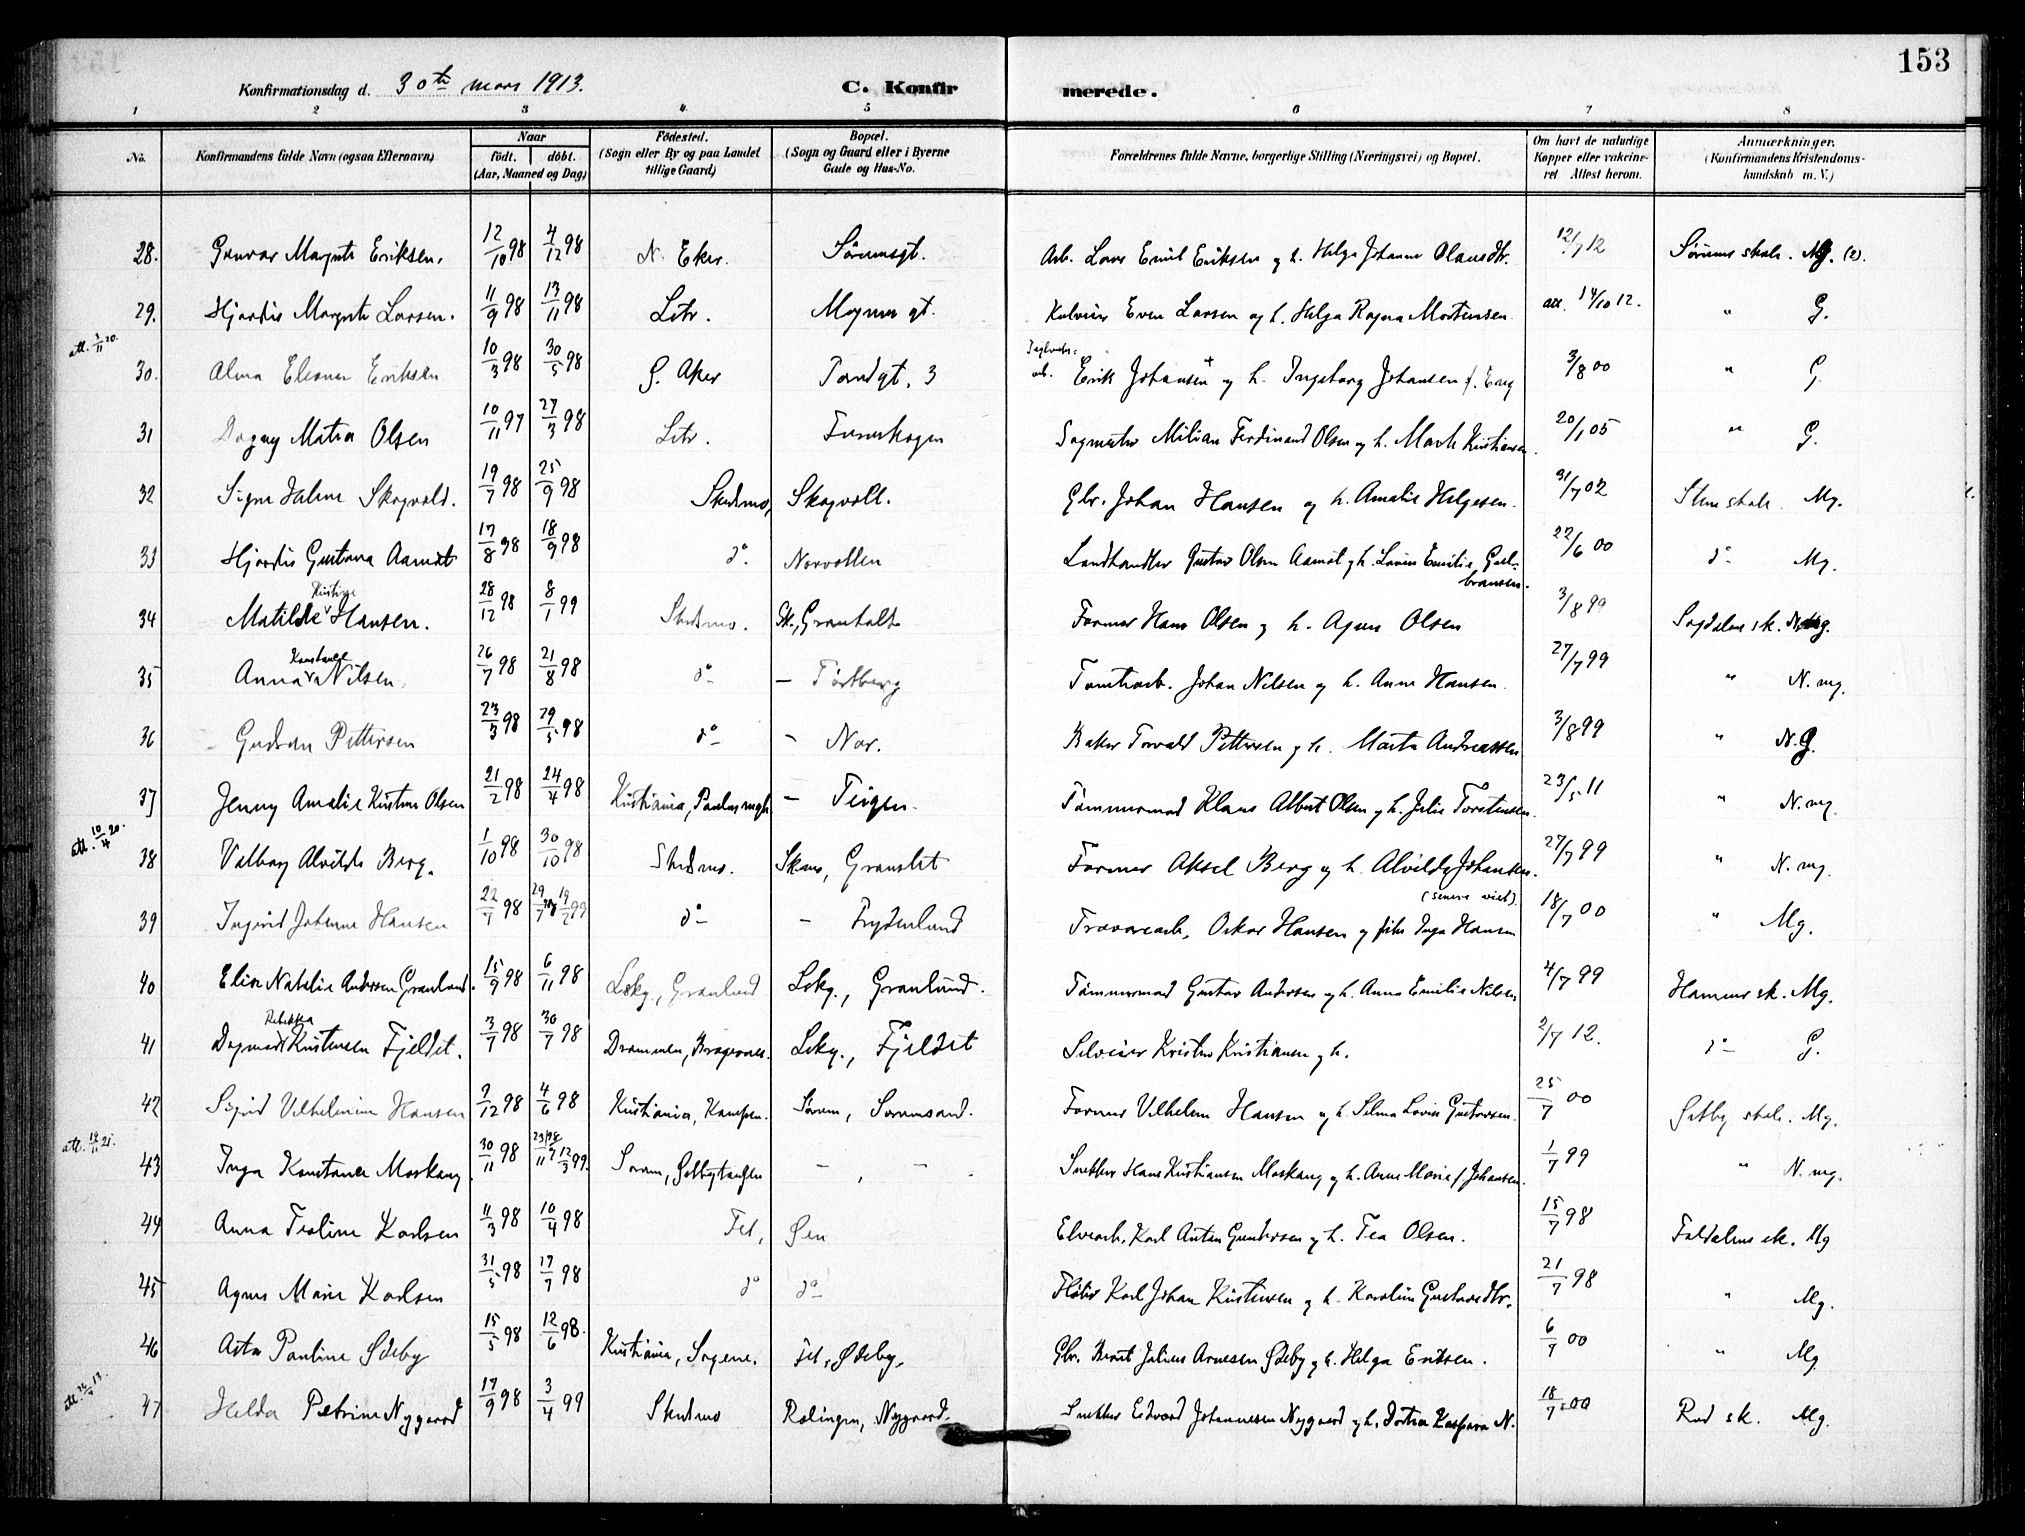 153
Konfirmationsdag d. 30te mars 1913. C. Konfirmerede.
1 2 3 4 5 6 7 8
No. Konfirmandens fulde Navn (ogsaa Efternavn) Naar født. døbt. (Aar, Maaned og Dag) Födested. (Sogn eller By og paa Landet tillige Gaard) Bopæl. (Sogn og Gaard eller i Byerne Gade og Hus-No. Forældrenes fulde Navne, borgerlige Stilling (Næringsvei) og Bopæl. Om havt de naturlige Kopper eller vakcineret Attest herom. Anmærkninger. (Konfirmandens Kristendomskundskab m. V.)
28. Gunvor Margrete Eriksen. 12/10 98 4/12 98 N. Eker. Sørumsgt. Arb. Lars Emil Eriksen og h. Helga Johanne Olausdtr. 12/7 12 Sørums skole. Mg. (2).
29. Hjørdis Margrete Larsen. 11/9 98 13/11 98 Lstr. Magnus gt. Even Larsen og h. Helga Ragna Mortensen att. 14/10 12. " G.
att. 3/11 20.
30. Alma Eleonor Eriksen 10/3 98 30/5 98 Ø. Aker Torvdgt. 3 Erik Johansen + og h. Ingeborg Johansen f. Eng 3/8 00 " G.
31 Dagny Matea Olsen 10/11 97 27/3 98 Lstr. Sagmester Milian Ferdinand Olsen og h. Marte Kristiansen. 20/1 05 " G.
32 Signe Halma Skogvold. 19/7 98 25/9 98 Skedsmo, Skogvoll. Gbr. Johan Hansen og h. Amalie Helgesen. 31/7 02 Stens skole. Mg.
33 Hjørdis Gustava Aamot 17/8 98 18/9 98 do. Norvollen Landhandler Gustav Olsen Aamot og h. Lovise Emilie Gulbransen. 22/6 00 do Mg.
34 Matilde Kristine Hansen. 28/12 98 8/1 99 Skedsmo. Sk., Granholt Former Hans Olsen og h. Agnes Olsen 3/8 99 Sagdalens sk. N.mg.
35 Anna Konstanse Nilsen. 26/7 98 21/8 98 do — Tørtberg Tomtearb. Johan Nilsen og h. Anne Hansen. 27/7 99 " N. mg.
36 Gudrun Pettersen 23/3 98 29/5 98 do — Nor. Baker Torvald Pettersen og h. Marta Andreassen 3/8 99 " N. G.
37 Jenny Amalie Kristine Olsen 21/2 98 24/4 98 Kristiania, Paulus mgh. — Teigen. Tømmermand Klaus Albert Olsen og h. Julie Torstensen. 23/5 11 " N. mg.
att. 10/4 20.
38 Valborg Alvilde Berg. 1/10 98 30/10 98 Skedsmo. Skedsmo, Granslet Former Aksel Berg og h. Alvilde Johansen. 27/7 99 " N. mg.
39 Ingrid Johanne Hansen 22/7 98 29/7 98 19/2 99 do — Frydenlund Travarearb. Oskar Hansen og pike Inga Hansen (senere viet). 18/7 00 " Mg.
40 Elise Natalie Andersen Granlund. 15/9 98 6/11 98 Lsky., Granlund Lsky., Granlund. Tømmermand Gustav Andersen og h. Anna Emilie Nilsen 4/7 99 Hammer sk. Mg.
41 Dagmar Rebekka Kristensen Fjeldet. 3/7 98 30/7 98 Drammen, Bragernes. Lsky., Fjeldet Kristen Kristiansen og h. 2/7 12. do G.
42 Sigrid Vilhelmine Hansen 9/12 98 4/6 98 Kristiania, Kampen. Sørum, Sørumsand. Former Vilhelm Hansen og h. Selma Lovise Gustavsen. 25/7 00 Sørby skole. Mg.
att. 14/11 21.
43 Inga Konstanse Moskaug 30/11 98 23/11 98 12/3 99. Sørum, — — Snekker Hans Kristiansen Moskaug og h. Anne Marie f. Johansen. 1/7 99 " N. mg.
44 Anna Teoline Karlsen 11/3 98 10/4 98 Fet, Øen Elvearb. Karl Anton Gundersen og h. Tea Olsen. 15/7 98 Faldalens sk. Mg
45 Agnes Marie Karlsen 31/5 98 17/7 98 do do Fløter Karl Johan Kristensen og h. Karoline Gustavsdtr. 21/7 98 " Mg.
46 Asta Pauline Ødeby 15/5 98 12/6 98. Kristiania, Sagene. Fet, Ødeby. Gbr. Bernt Julius Arnesen Ødeby og h. Helga Eriksen. 6/7 00 " Mg
att. 24/7 13.
47 Helda Petrine Nygaard 17/9 98 3/4 99 Skedsmo Rælingen, Nygaard. Snekker Edvard Johannesen Nygaard og h. Dortea Kaspara N. 18/7 00 Rud sk. Mg.